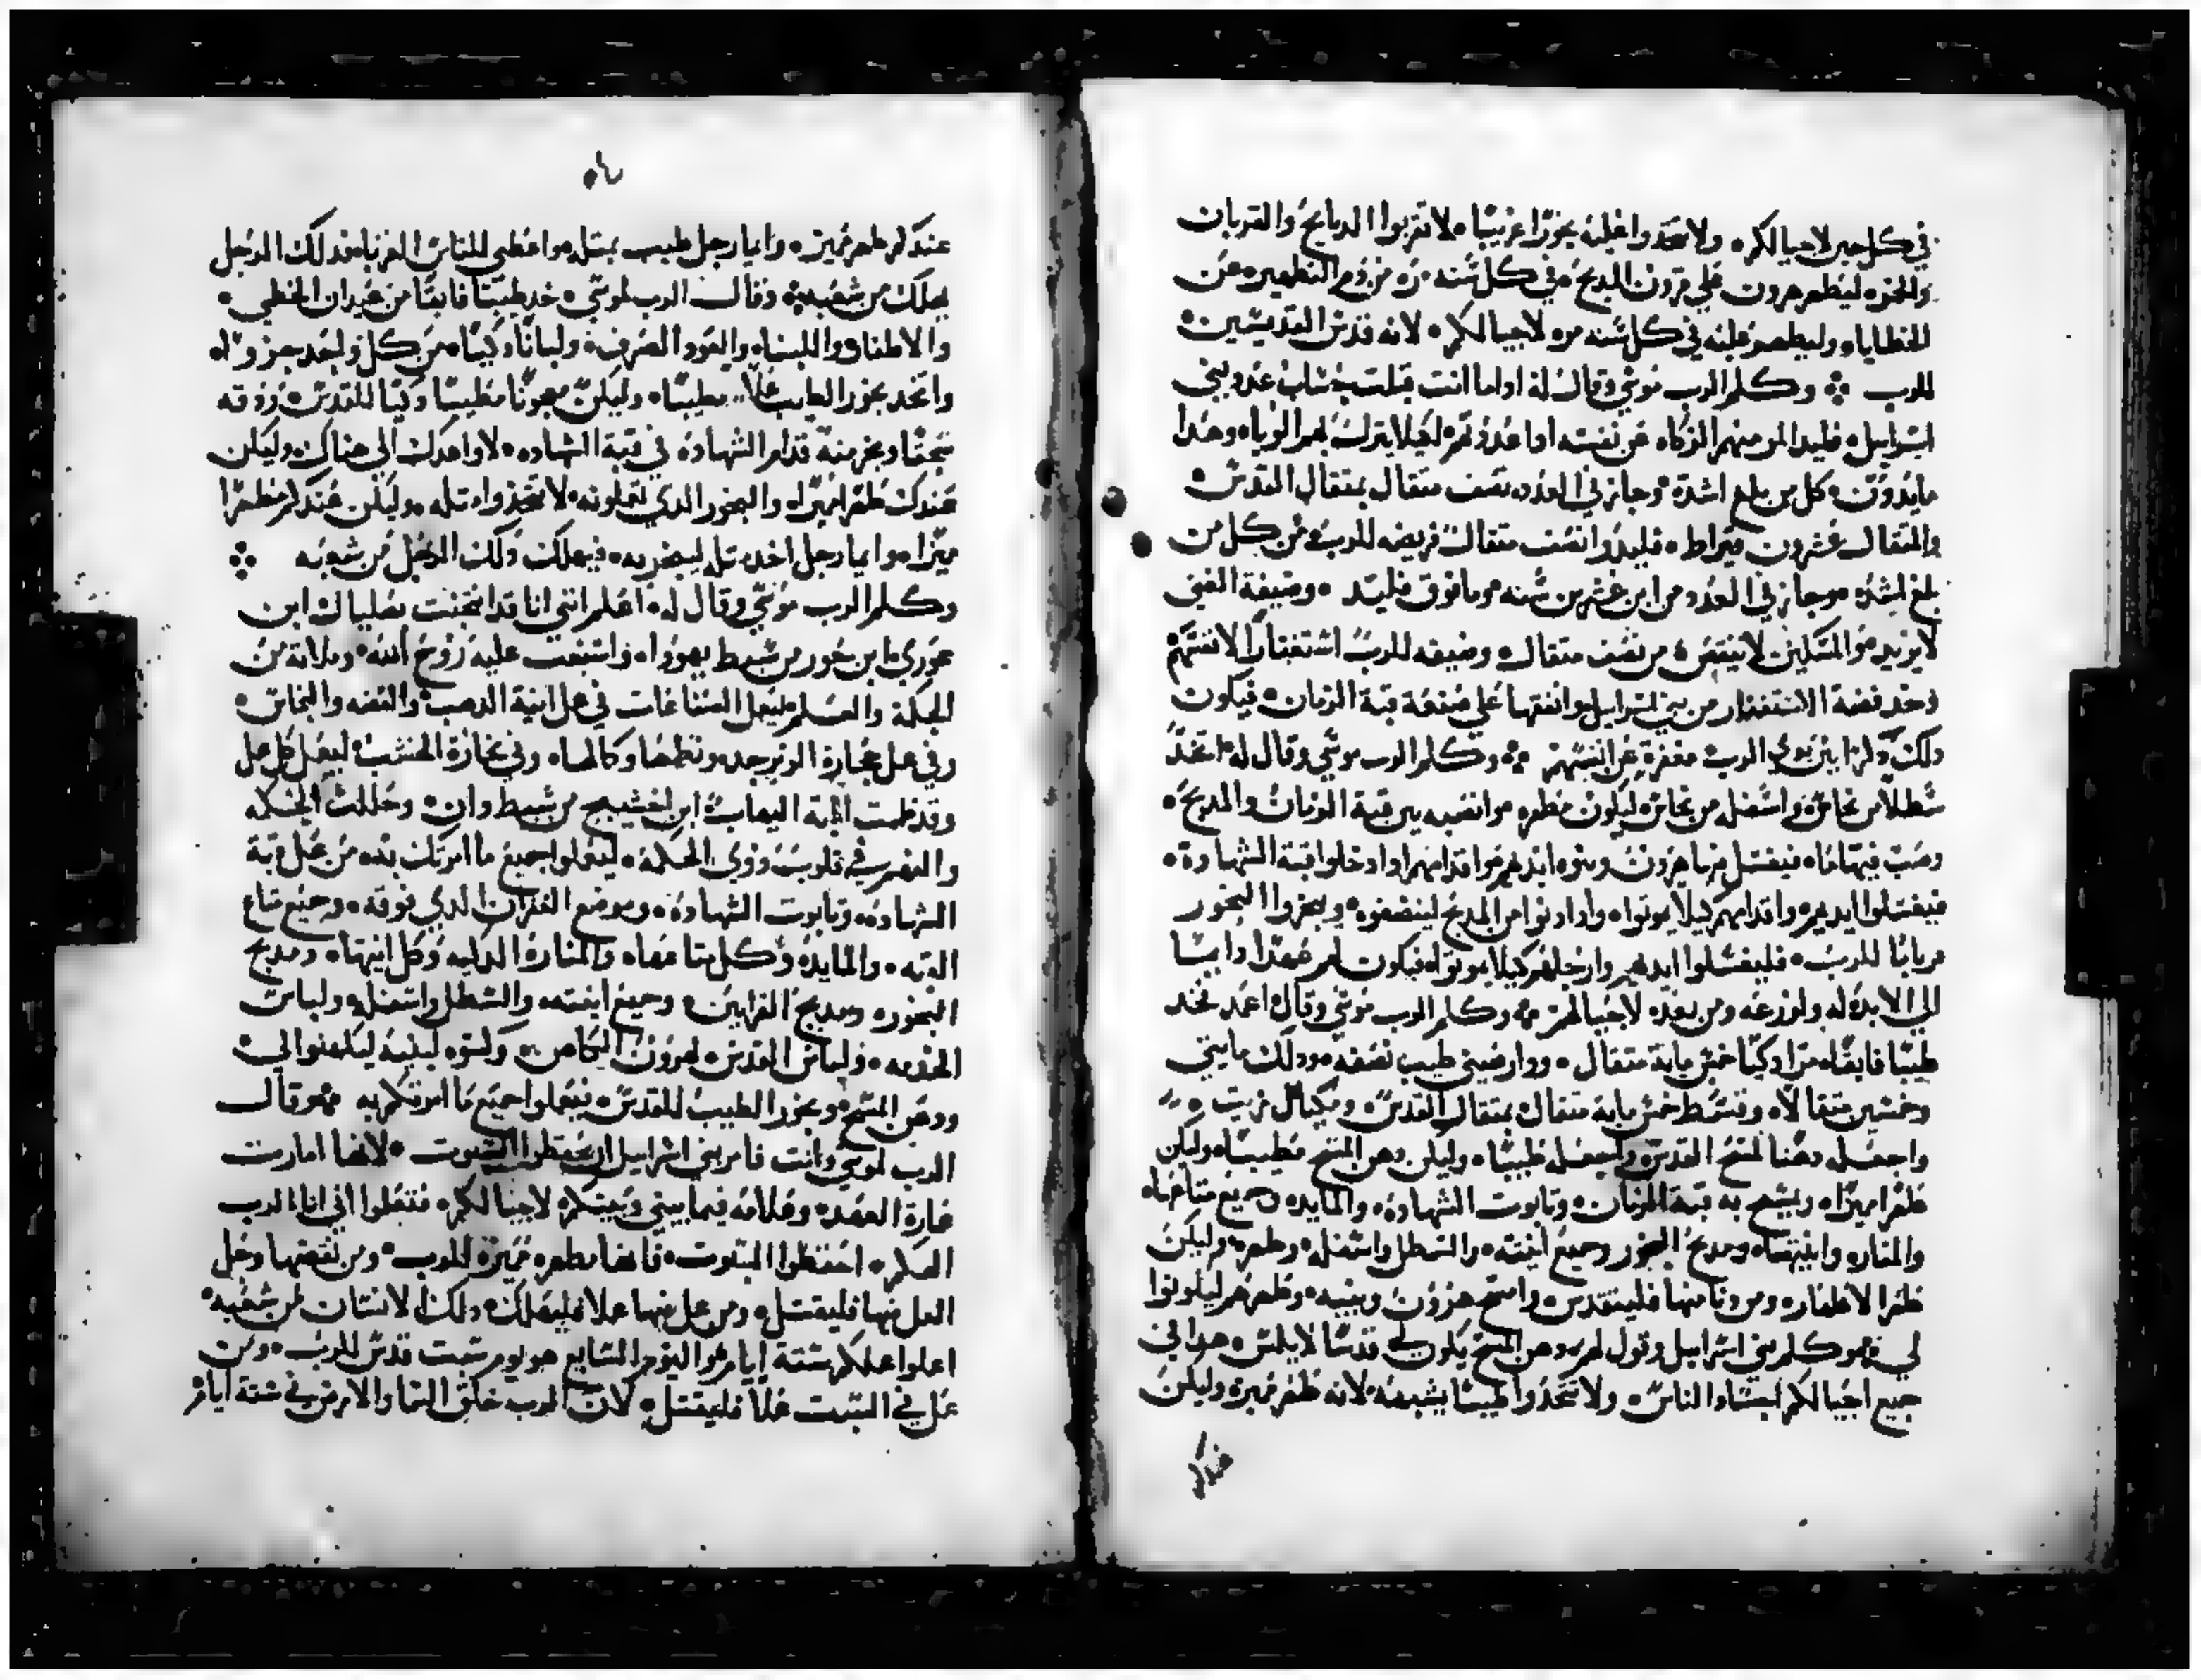 في كل حين لاجيالكم ولا تصعدوا عليه بخورًا غريبًا لا تقربوا الدبايح والقربان
والخمر ليطهر هرون علي قرون المدبح في كل سنه مره من دم التطهير عن
الخطايا وليطهر عليه في كل سنه مره لاجيالكم لانه قدس القديسين
للرب وكلم الرب موسي وقال له اداما انت قبلت حساب عدد بني
اسراييل فليد المر منهم الزكاه عن نفسه اذا عددتهم لكيلا يترك بهم الوباء وهدا
مايدون كل من بلغ اشده وجاز في العدد نصف متقال بمتقال القدس
والمتقال عشرون قيراط فليدوا نصف متقال فريضه للرب من كل من
بلغ اشده وجاز في العدد من ابن عشرين سنه وما فوق فليد وضيفة الغني
لا يزيد والمسكين لا ينقص من نصف متقال وضيفه للرب استغفارًا لانفسهم
وخد فضة الاستغفار من بني اسراييل وانفقها علي منفعة قبة الزمان فيكون
دلك بين يدي الرب مغفرة عن انفسهم وكلم الرب موسي وقال له اتخد
سطلًا من نحاس واسفله من نحاس ليكون مطهره وانصبه بين قبة الزمان والمدبح
وصب فيها ماء فيغسل منها هرون وبنوه ايديهم واقدامهم ادا دخلوا قبة الشهادة
فيغسلوا ايديهم واقدامهم كيلا يموتوا وادا دنوا من المدبح لينضفوه ويبخروا البخور
قربانًا للرب فليغسلوا ايديهم وارجلهم كيلا يموتوا فيكون لهم عهدًا دايمًا
الي الابد له ولزرعه ومن بعده لاجيالهم وكلم الرب موسي وقال اعمد فخد
طيبًا فايقًا مرًا دكيًا خمس ماية متقال ودارصيني طيب نصفه ودلك مايتي
وخمسين متقالًا وقسط خمس ماية متقال بمتقال القدس ومكيال زيت
واجعله دهنًا لمسح القدس واجعله طيبًا وليكن دهن المسح مطيبًا وليكن
طهرًا ميزًا ويمسح به قبة الزمان وتابوت الشهادة والمايده وجميع متاعها
والمناره وانيتها ومدبح البخور وجميع انيته والسطل واسفله وطهره وليكن
طهرًا لاطهار ومن دنا منها فليتقدس وامسح هرون وبنيه وطهرهم ليكونوا
لي وكلم بني اسراييل وقول لهم دهن المسح يكون لي قدسًا لا يلمس هدا في
جميع اجيالكم لبشاد الناس ولا تتخدوا طيبًا يشبهه لانه طهر ميزه وليكن
عندكم
عندكم طهر ميزه وايما رجل طيب بمتله واعطي للناس الغربا فدلك الرجل
يهلك من شعبه وقال الرب لموسي خد طيبًا فايقًا من عيدان الخطمي
والاطفار واللبنا والعود الصرف ولبانًا دكيًا من كل واحد جزو
واتخد بخور الطايب عملًا مطيبًا وليكن معجونًا مطيبًا دكيًا للقدس دقه
سحقًا وبخر منه قدام الشهاده في قبة الشهاده لاواعدك الي هناك وليكن
عندك طهر اميزا والبخور الدي تعملونه لا تتخدوا متله وليكن عندكم مطهرًا
ميزا وايما رجل اخد متله ليبخر به فيهلك دلك الرجل من شعبه
وكلم الرب موسي وقال له اعلم انني انا قد انتخبت بصلياك ابن
عوري ابن حور من شبط يهودا واسبغت عليه روح الله وملاته من
الحكمة والعلم ليعمل الصناعات في عمل انية الدهب والفضه والنحاس
وفي عمل حجارة الزبرجد ونظمها وكالها وفي نجارة الخشب ليعمل كل عمل
وقد ضممت اليه اليهاب ابن اخشيبح من شبط دان وحللت الحكمه
والفهم في قلوب ذوي الحكمة ليعملوا جميع ما امرتك بته من عمل قبة
الشهاده وتابوت الشهادة وموضع الغفران الدي فوقه وجميع متاع
القبه والمايده وكل متاعها والمنارة الدكيه وكل انيتها ومدبح
البخور ومدبح القرابين وجميع انيته والسطل واسفله ولباس
الخدمه ولباس القدس لهرون الكاهن وكسوه لبنيه ليكهنوا لي
ودهن المسح وبخور الطيب للقدس فيفعلوا جميع ما امرتكم به وقال
الرب لموسي وانت فامر بني اسراييل ان يحفظوا السبوت لانها امارت
العهد وعلامه فيما بيني وبينكم لاجيالكم فتعلموا اني انا الرب
الهكم احفظوا السبوت فانها مطهره ميزة للرب ومن نقضها وحل
العمل فيها فليقتل ومن عمل فيها عملا فليهلك دلك الانسان من شعبه
اعملوا عملكم ستة ايام واليوم السابع هو يوم سبت قدس للرب ومن
عمل في السبت عملًا فليقتل لان الرب خلق السما والارض في ستة ايام